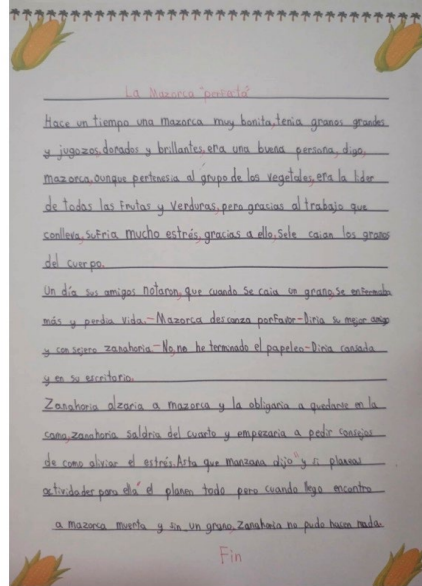 La Mazorca "perfecta"
Hace un tiempo una mazorca muy bonita, tenia granos grandes
y jugozos, dorados y brillantes, era una buena persona, digo,
mazorca, aunque pertenesia al grupo de los vegetales, era la lider
de todas las Frutas y verduras, pero gracias al trabajo que
conlleva, sufria mucho estrés, gracias a ello, sele caian los granos
del cuerpo.
Un día sus amigos notaron, que cuando se caia un grano, se enfermaba
más y perdia vida. - Mazorca descanza porfavor - Diria su mejor amigo
y consejero zanahoria. - No, no he terminado el papeleo - Diria cansada
y en su escritorio.
Zanahoria alzaria a mazorca y la obligaria a quedarse en la
cama, zanahoria saldria del cuarto y empezaria a pedir consejos
de como aliviar el estrés. Asta que manzana dijo "y si planeas
actividades para ella" el planeo todo pero cuando llego encontro
a mazorca muerta y sin un grano, zanahoria no pudo hacer nada.
Fin